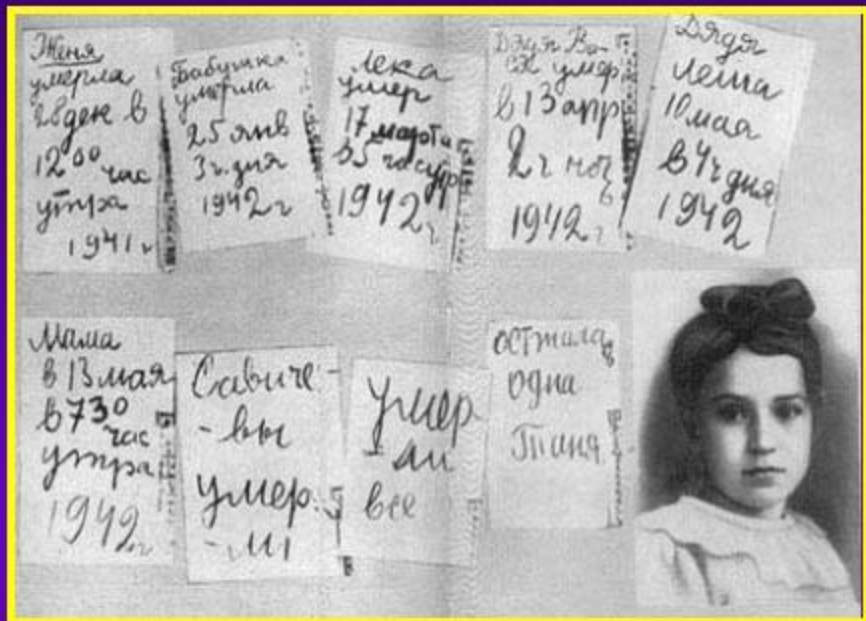 Женя
умерла
28 дек в
12 00 час
утра
1941 г
Бабушка
умерла
25 янв
3 ч. дня
1942 г
Лека
умер
17 марта
в 5 час утр
1942 г
Дядя Ва-
ся умер
в 13 апр
2 ч ноч
в
1942 г
Дядя
Леша
10 мая
в 4 ч дня
1942
Мама
в 13 мая
в 7 30
час
утра
1942 г
Савиче-
-вы
умер-
-ли
умер
-ли
все
осталась
одна
Таня